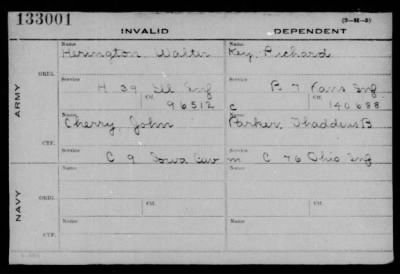 133001
(3-H-3)
INVALID
DEPENDENT
Name
Herington, Walter
Name
Key, Richard
ARMY
ORIG.
Service
H 39 Ill Inf
Ctf.
96512
Service
B 7 Kans Inf
Ctf.
C 140688
CTF.
Name
Cherry, John
Name
Parker, Thaddeus B
Service
C 9 Iowa Cav
Service
m C 76 Ohio Inf
NAVY
ORIG.
Name
Ctf.
Name
Ctf.
CTF.
Name
Name